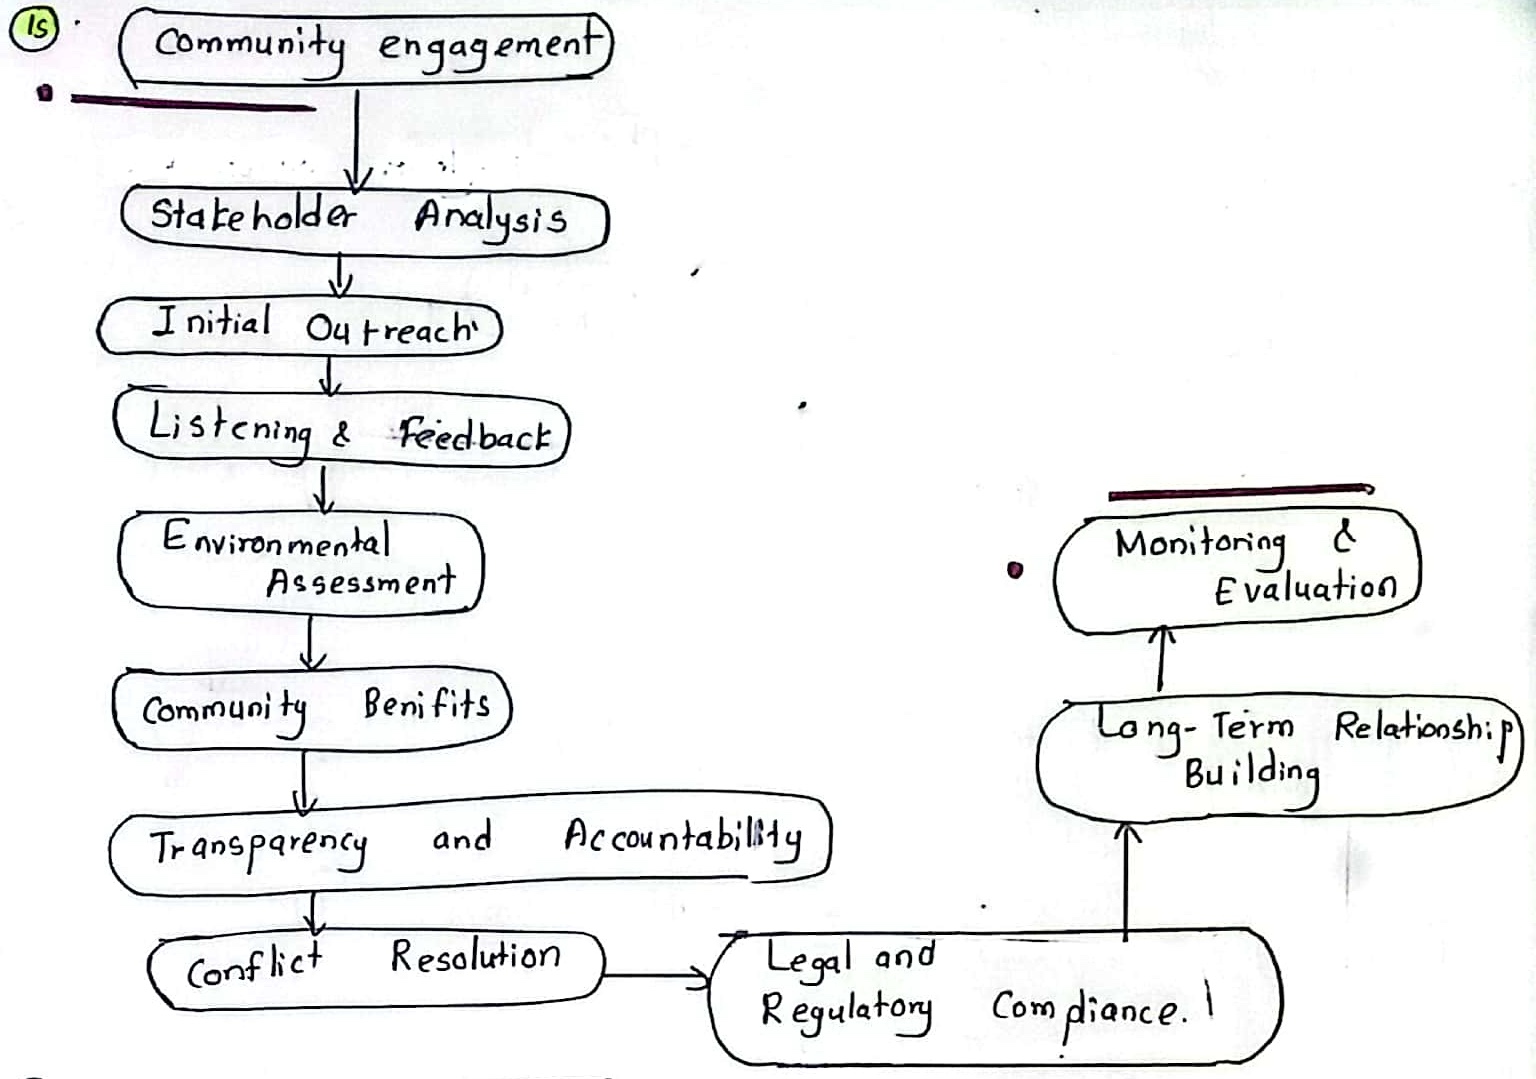 15
Community engagement
Stakeholder Analysis
Initial Outreach
Listening & Feedback
Environmental
Assessment
Community Benifits
Transparency and Accountability
Conflict Resolution
Legal and
Regulatory Compliance.
Long-Term Relationship
Building
Monitoring &
Evaluation